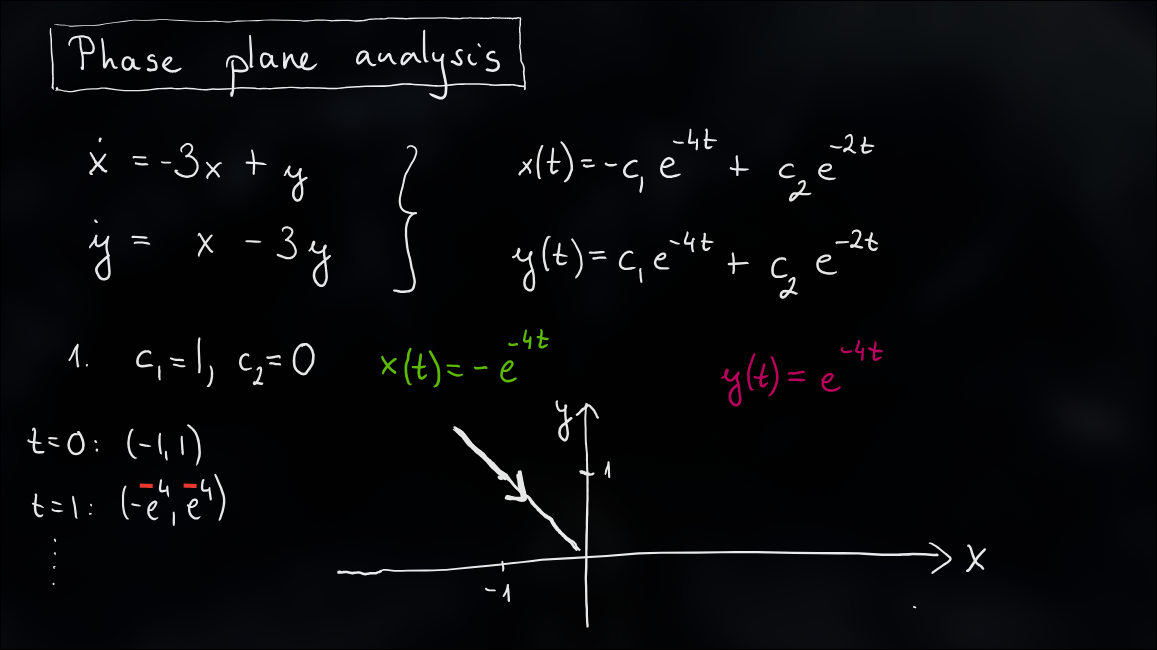 Phase plane analysis
ẋ = -3x + y
ẏ = x - 3y
x(t) = -c₁ e^{-4t} + c₂ e^{-2t}
y(t) = c₁ e^{-4t} + c₂ e^{-2t}
1. c₁ = 1, c₂ = 0
x(t) = - e^{-4t}
y(t) = e^{-4t}
t=0: (-1, 1)
t=1: (-e^{-4}, e^{-4})
y
1
x
-1